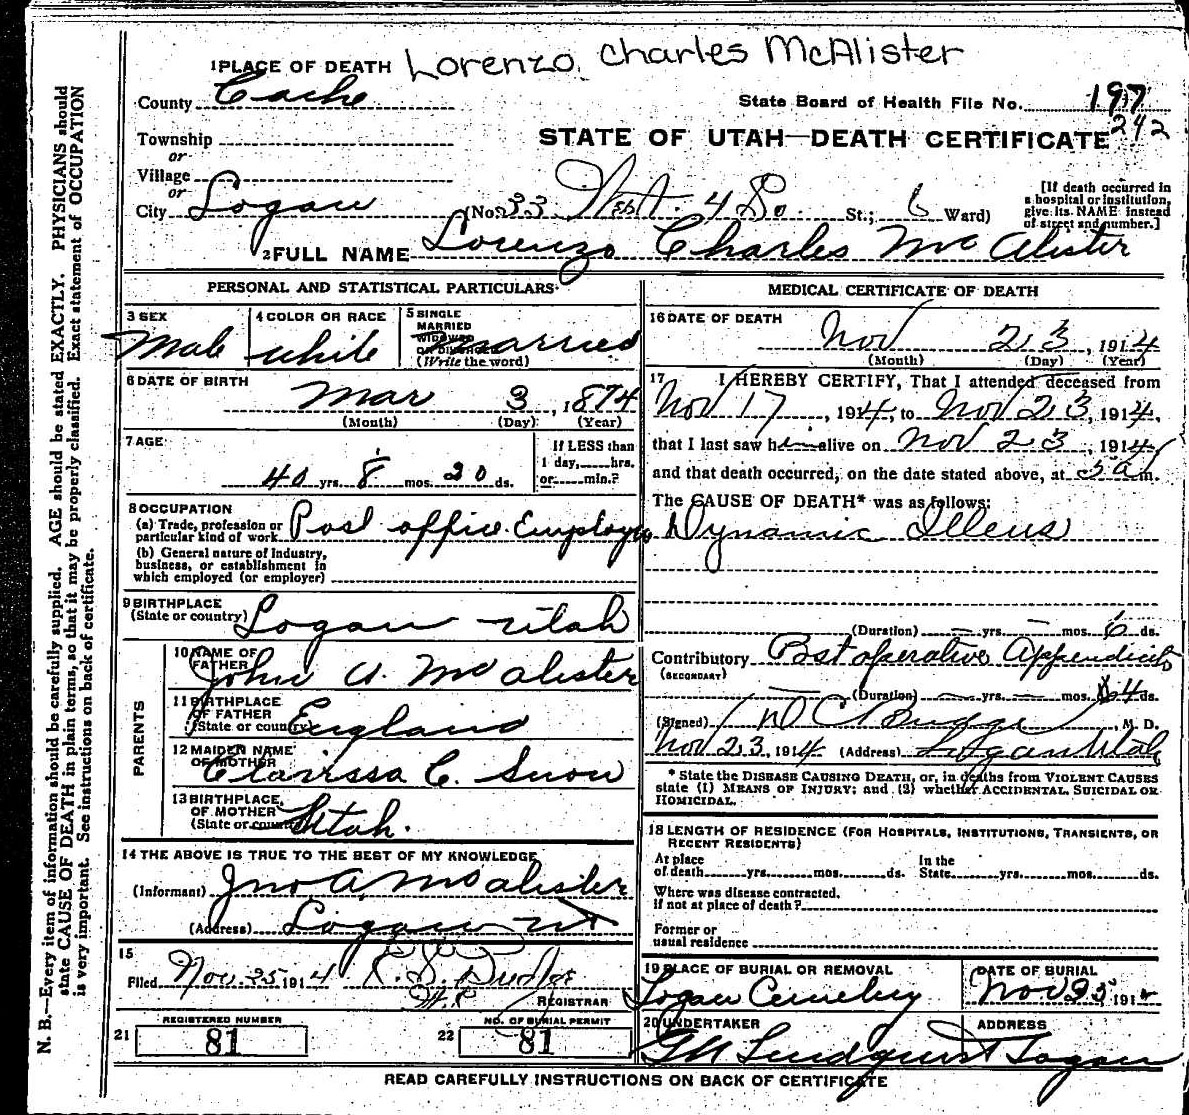 Lorenzo Charles McAlister
1 PLACE OF DEATH
County Cache
State Board of Health File No. 197
242
STATE OF UTAH—DEATH CERTIFICATE
Township
or
Village
or
City Logan (No. 33 West 4 So. St.; 6 Ward)
[If death occurred in
a hospital or institution,
give its NAME instead
of street and number.]
2 FULL NAME Lorenzo Charles McAlister
PERSONAL AND STATISTICAL PARTICULARS
3 SEX
Male
4 COLOR OR RACE
white
5 SINGLE
MARRIED
WIDOWED
OR DIVORCED
(Write the word)
Married
6 DATE OF BIRTH
Mar 3, 1874
(Month) (Day) (Year)
7 AGE
40 yrs. 8 mos. 20 ds.
If LESS than
1 day, hrs.
or min.?
8 OCCUPATION
(a) Trade, profession or
particular kind of work Post office Employe
(b) General nature of industry,
business, or establishment in
which employed (or employer)
9 BIRTHPLACE
(State or country) Logan Utah
PARENTS
10 NAME OF
FATHER John A. McAlister
11 BIRTHPLACE
OF FATHER
(State or country) England
12 MAIDEN NAME
OF MOTHER Clarissa C. Snow
13 BIRTHPLACE
OF MOTHER
(State or country) Utah.
14 THE ABOVE IS TRUE TO THE BEST OF MY KNOWLEDGE
(Informant) Jno A McAlister
(Address) Logan Ut
15
Filed Nov. 25 1914
REGISTRAR
21 REGISTERED NUMBER
81
22 NO. OF BURIAL PERMIT
81
MEDICAL CERTIFICATE OF DEATH
16 DATE OF DEATH
Nov 23, 1914
(Month) (Day) (Year)
17 I HEREBY CERTIFY, That I attended deceased from
Nov 17, 1914, to Nov 23, 1914,
that I last saw him alive on Nov 23, 1914,
and that death occurred, on the date stated above, at 5 am.
The CAUSE OF DEATH* was as follows:
Dynamic Illeus
(Duration) — yrs. — mos. 6 ds.
Contributory Post operative Appendicitis
(SECONDARY)
(Duration) — yrs. — mos. 4 ds.
(Signed) D C Budge, M. D.
Nov 23, 1914 (Address) Logan Utah
* State the DISEASE CAUSING DEATH, or, in deaths from VIOLENT CAUSES
state (1) MEANS OF INJURY; and (2) whether ACCIDENTAL, SUICIDAL OR
HOMICIDAL.
18 LENGTH OF RESIDENCE (FOR HOSPITALS, INSTITUTIONS, TRANSIENTS, OR
RECENT RESIDENTS)
At place
of death yrs. mos. ds.
In the
State yrs. mos. ds.
Where was disease contracted,
if not at place of death?
Former or
usual residence
19 PLACE OF BURIAL OR REMOVAL
Logan Cemetery
DATE OF BURIAL
Nov 25 1914
20 UNDERTAKER
GM Lundquist
ADDRESS
Logan
READ CAREFULLY INSTRUCTIONS ON BACK OF CERTIFICATE
N. B.—Every item of information should be carefully supplied. AGE should be stated EXACTLY. PHYSICIANS should
state CAUSE OF DEATH in plain terms, so that it may be properly classified. Exact statement of OCCUPATION
is very important. See instructions on back of certificate.